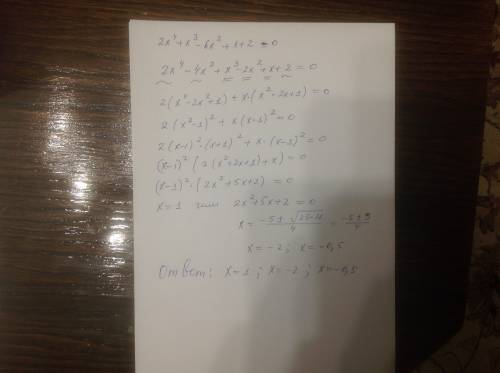 2x⁴+x³-6x²+x+2=0
2x⁴-4x²+x³-2x²+x+2=0
2(x⁴-2x²+1)+x·(x²-2x+1)=0
2(x²-1)²+x(x-1)²=0
2(x-1)²·(x+1)²+x·(x-1)²=0
(x-1)²(2(x²+2x+1)+x)=0
(x-1)²·(2x²+5x+2)=0
x=1 или 2x²+5x+2=0
x=(-5±√(25-16))/4=(-5±3)/4
x=-2; x=-0,5
Ответ: x=1; x=-2; x=-0,5